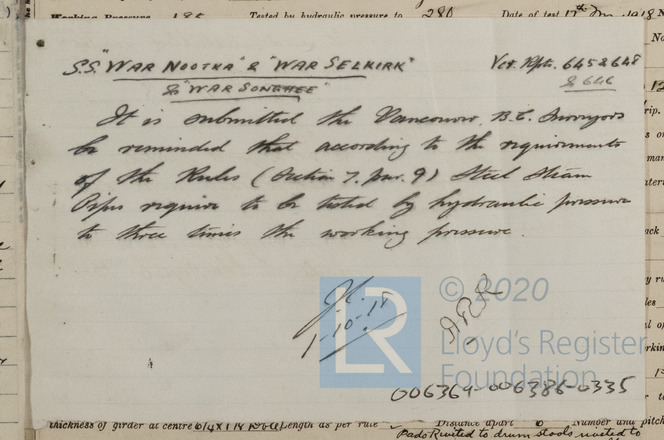 Working Pressure 185 Tested by hydraulic pressure to 280 Date of test 17th 1918
S.S. "WAR NOOTKA" & "WAR SELKIRK" Vcr. Rpts. 645 & 648
& "WAR SONGHEE" & 646
It is submitted the Vancouver, B.C. Surveyors
be reminded that according to the requirements
of the Rules (Section 7, Par. 9) Steel Steam
Pipes require to be tested by hydraulic pressure
to three times the working pressure.
1-10-18
LR
© 2020
Lloyd's Register
Foundation
006364-006386-0335
thickness of girder at centre Length as per rule Distance apart Number and pitch
Pads Riveted to drum stools riveted to